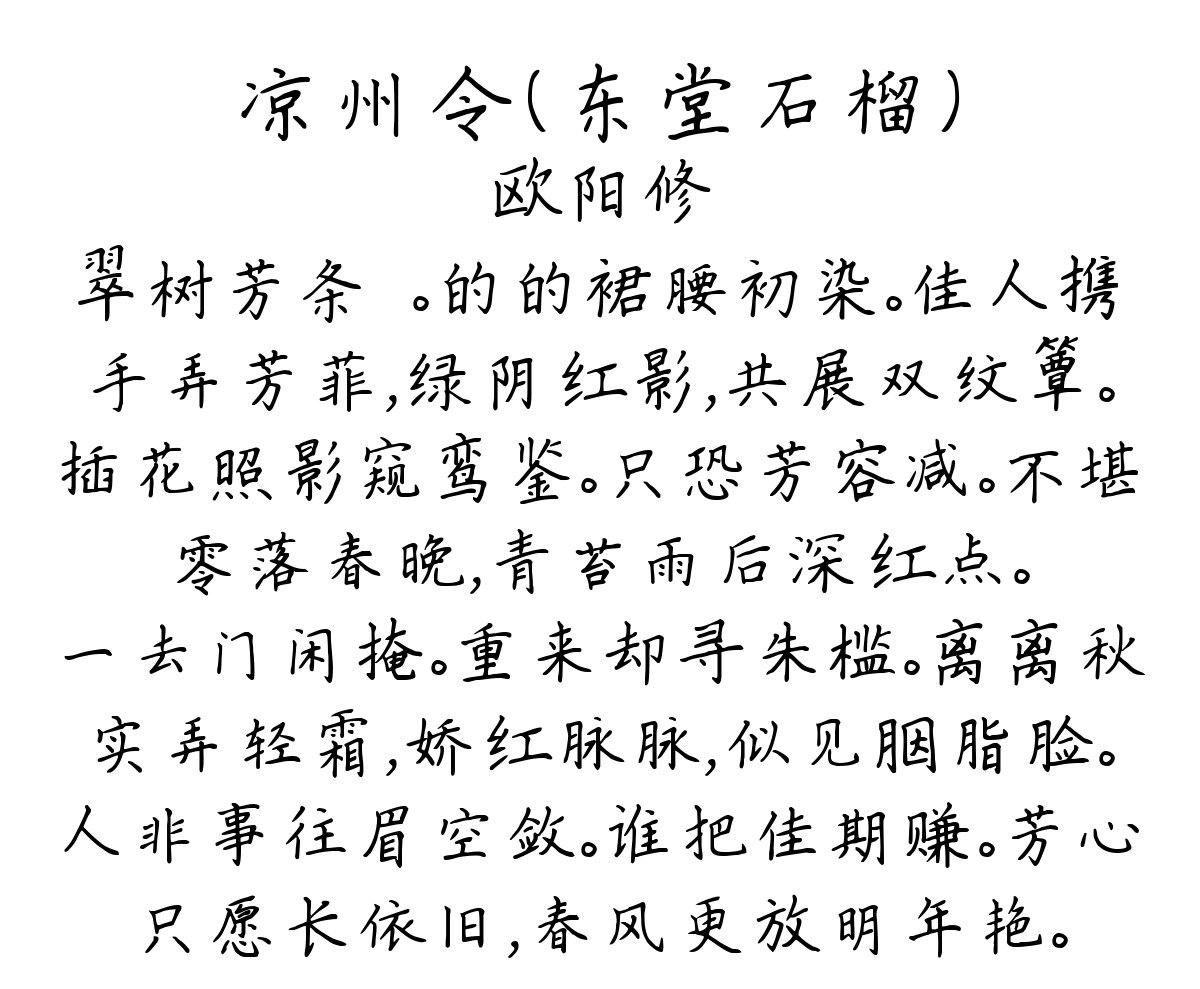 凉州令(东堂石榴)
欧阳修
翠树芳条 。的的裙腰初染。佳人携
手弄芳菲,绿阴红影,共展双纹簟。
插花照影窥鸾鉴。只恐芳容减。不堪
零落春晚,青苔雨后深红点。
一去门闲掩。重来却寻朱槛。离离秋
实弄轻霜,娇红脉脉,似见胭脂脸。
人非事往眉空敛。谁把佳期赚。芳心
只愿长依旧,春风更放明年艳。